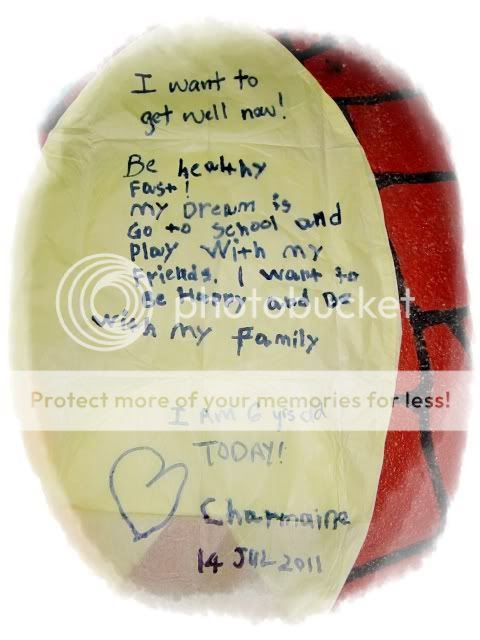 I want to
get well now!
Be healthy
Fast!
my Dream is
Go to School and
Play With my
Friends. I want to
Be Happy and Be
With my Family
photobucket
Protect more of your memories for less!
I Am 6 yrs old
TODAY!
Charmaine
14 JUL 2011